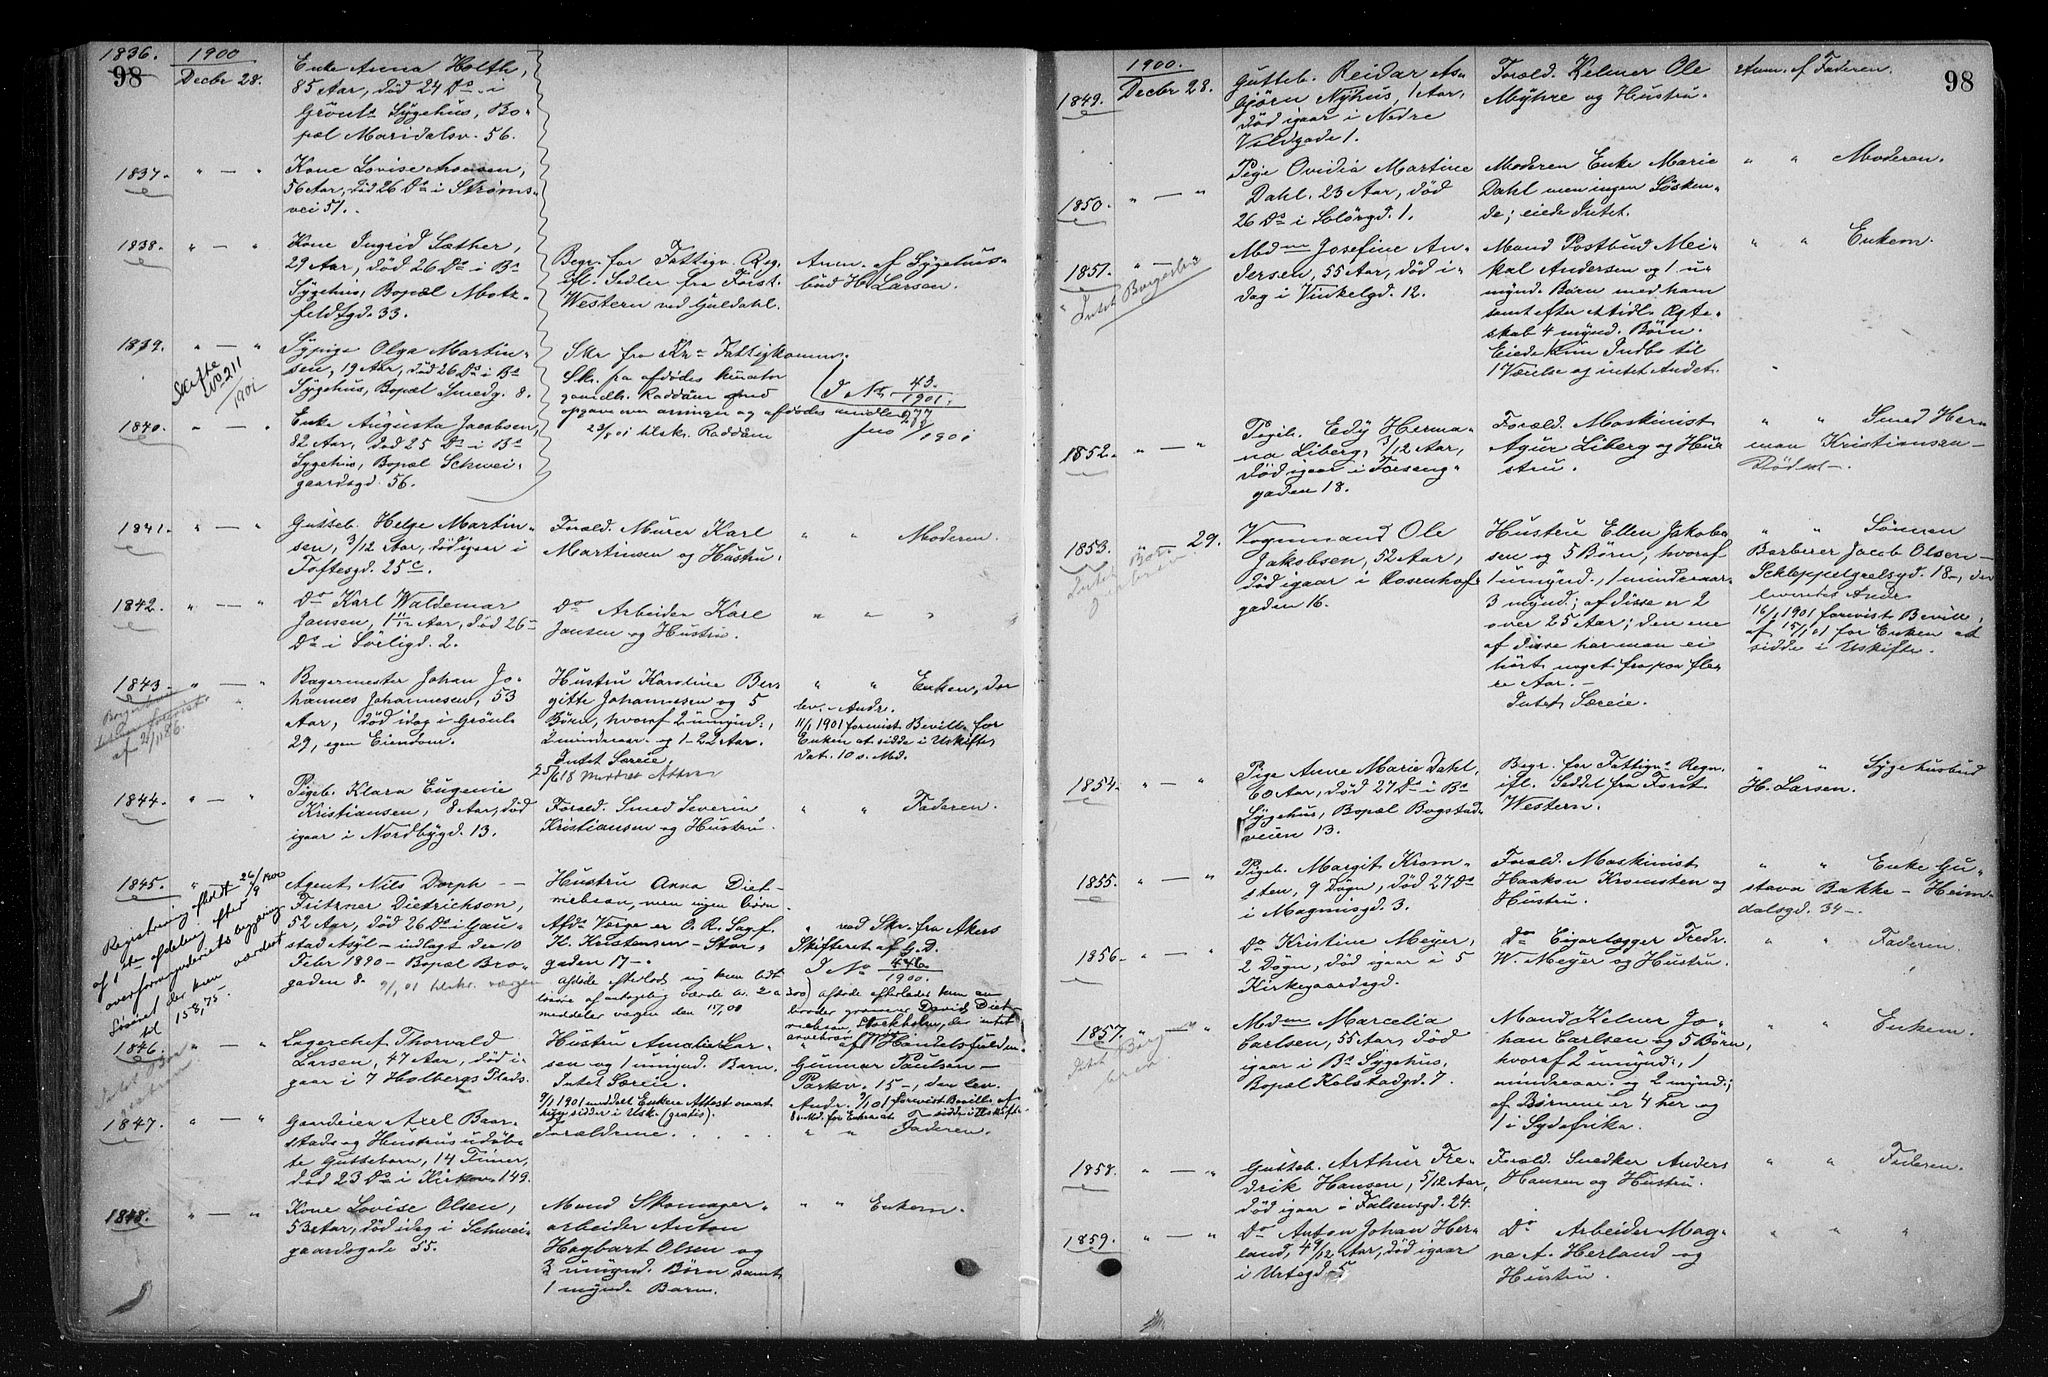 1836.
98
1900
Decbr 28.
Enke Anna Holth,
85 Aar, död 24 Ds. i
Grönl. Sygehus, Bo-
pæl Maridalsv. 56.
1837. " — "
Kone Lovise
56 Aar, död 26 Ds i Ströms-
vei 51.
1838. " — "
Kone Ingrid Sæther,
29 Aar, död 26 Ds i Bs
Sygehus, Bopæl Motz-
feldtgd. 33.
Begr. for Fattigv. Reg.
ifl. Sedler fra Forst.
Western ved Guldahl.
Anm. af Sygehus-
bud H. Larsen.
1839. " — "
Skifte
No 211
1901
Sypige Olga Martin-
sen, 19 Aar, död 26 Ds i Bs
Sygehus, Bopæl Smedg. 8.
Skr. fra Kra Fattigkomm.
Skr. fra afdödes kurator
Raddum
opgave om arvinger og afdödes midler
23/8 01 tilskr. Raddum
J No 43/1901.
1840. " — "
Enke Augusta Jacobsen,
82 Aar, död 25 Ds i Bs
Sygehus, Bopæl Schwei-
gaardsgd. 56.
1841. " — "
Gutteb. Helge Martin-
sen, 3/12 Aar, död igaar i
Toftesgd. 25 c.
Foræld. Murer Karl
Martinsen og Hustru.
" " Moderen.
1842. " — "
Do Karl Waldemar
Jansen, 1 11/12 Aar, död 26
Ds i Sörligd. 2.
Do Arbeider Karl
Jansen og Hustru.
" " "
1843. " — "
Bagermester Johan Jo-
hannes Johannesen, 53
Aar, död idag i Grönl.
29, egen Eiendom.
Hustru Karoline Ber-
gitte Johannesen og 5
Börn, hvoraf 2 umynd.,
2 mindreaar. og 1 - 22 Aar.
Intet Særeie.
" " Enken, der
lev. Andr.
11/1 1901 forevist Bevill. for
Enken at sidde i Uskifte,
dat. 10 s. Md.
1844. " — "
Pigeb. Klara Eugenie
Kristiansen, 8 Aar, död
igaar i Nordbygd. 13.
Foræld. Smed Severin
Kristiansen og Hustru.
" " Faderen.
1845.
Registrering afholdt 26/9 1900
af 1ste afdeling efter
overformynderiets begjæring
Löseret der kun værderet
til 158,75.
Agent Nils Dorph
Fritzner Dietrichson,
52 Aar, död 26 Ds i Gau-
stad Asyl – indlagt den 10
Febr 1890 – Bopæl Bro-
gaden 8.
9/1 01 tilskr. værgen
Hustru Anna Diet-
richson, men ingen börn
Afds Værge er O. R. Sagf.
K. Kristensen – Stor-
gaden 17 –.
" ved Skr. fra Akers
Skifteret af G. D.
J No 446/1900.
1846. " — "
Lagerchef Thorvald
Larsen, 47 Aar, död i-
gaar i 7 Holbergs Plads.
Hustru Amalie Lar-
sen og 1 umynd. Barn.
Intet Særeie.
9/1 1901 meddelt Enken Attest om at
hun sidder i Usk. (gratis).
" af Handelsfuldm.
Gunnar Paulsen –
Parkv. 15 –, den lev.
Andr. 9/1 01 forevist Bevill. af
1847. " — "
Gaardeier Axel Baar-
stads og Hustrus udöb-
te Guttebarn, 14 Timer,
död 23 Ds i Kirkev. 149.
Forældrene. . . . .
" " Faderen.
1848. " — "
Kone Lovise Olsen,
53 Aar, död idag i Schwei-
gaardsgade 55.
Mand Skomager-
arbeider Anton
Hagbart Olsen og
3 umynd. Börn samt
1 mynd. Barn.
" " Enkem.
98
1900.
1849. Decbr 28.
Gutteb. Reidar As-
björn Nyhus, 1 Aar,
död igaar i Nedre
Voldgade 1.
Foræld. Kelner Ole
Myhre og Hustru.
Anm. af Faderen.
1850. " — "
Pige Ovidia Martine
Dahl, 23 Aar, död
26 Ds i Solörgd. 1.
Moderen Enke Marie
Dahl men ingen Sösken-
de; eiede Intet.
" " Moderen.
1851. " — "
Intet Borgerbr.
Mdm Josefine An-
dersen, 55 Aar, död i-
dag i Vinkelgd. 12.
Mand Postbud Mei-
kal Andersen og 1 u-
mynd. Barn med ham
samt efter et tidl. Ægte-
skab 4 mynd. Börn.
Eiede kun Indbo til
1 Værelse og intet Andet.
" " Enkem.
1852. " — "
Pigeb. Edy Herma-
na Liberg, 3/12 Aar,
död igaar i Fossengs-
gaden 18.
Foræld. Maskinist
Agur Liberg og Hu-
stru.
" " Smed Her-
man Kristiansen –
1853. " — 29.
Vognmand Ole
Jakobsen, 52 Aar,
död igaar i Rosenhof-
gaden 16.
Hustru Ellen Jakob-
sen og 5 Börn, hvoraf
1 umynd., 1 mindreaar.
3 mynd.; af disse er 2
over 25 Aar; den ene
af disse har man ei
hört noget fra paa fle-
re Aar. –
Intet Særeie.
" " Sönnen
Barberer Jacob Olsen –
Schleppegrelsgd. 18 –, der
leverede Andr.
16/1 1901 forevist Bevill.
af 15/1 01 for Enken at
sidde i Uskifte.
1854. " — "
Pige Anne Marie Dahl,
60 Aar, död 27 Ds i Bs
Sygehus, Bopæl Bogstad-
veien 13.
Begr. for Fattigvs Regn.
ifl. Seddel fra Forst.
Western.
" " Sygehusbud
H. Larsen.
1855. " — "
Pigeb. Margit Krom-
sten, 9 Dögn, död 27 Ds
i Magnusgd. 3.
Foræld. Maskinist
Haakon Kromsten og
Hustru.
" " Enke Gu-
stava Bakke – Heim-
dalsgd. 34 –.
1856. " — "
Do Kristine Meyer,
2 Dögn, död igaar i 5
Kirkegaardsgd.
Do Cigarlægger Fredr.
W. Meyer og Hustru.
" " Faderen.
1857. " — "
Intet Borger-
brev
Mdm Marcelia
Carlsen, 55 Aar, död
igaar i Bs Sygehus,
Bopæl Kolstadgd. 7.
Mand Kelner Jo-
han Carlsen og 5 Börn,
hvoraf 2 umynd., 1
mindreaar. og 2 mynd.;
af Börnene er 4 her og
1 i Sydafrika.
" " Enkem.
1858. " — "
Gutteb. Arthur Fre-
drik Hansen, 5/12 Aar,
död igaar i Falsensgd. 24.
Foræld. Snedker Anders
Hansen og Hustru.
" " Faderen.
1859. " — "
Do Anton Johan Her-
land, 4 9/12 Aar, död igaar
i Urtegd. 5
Do Arbeider Mag-
ne A. Herland og
Hustru.
" " "